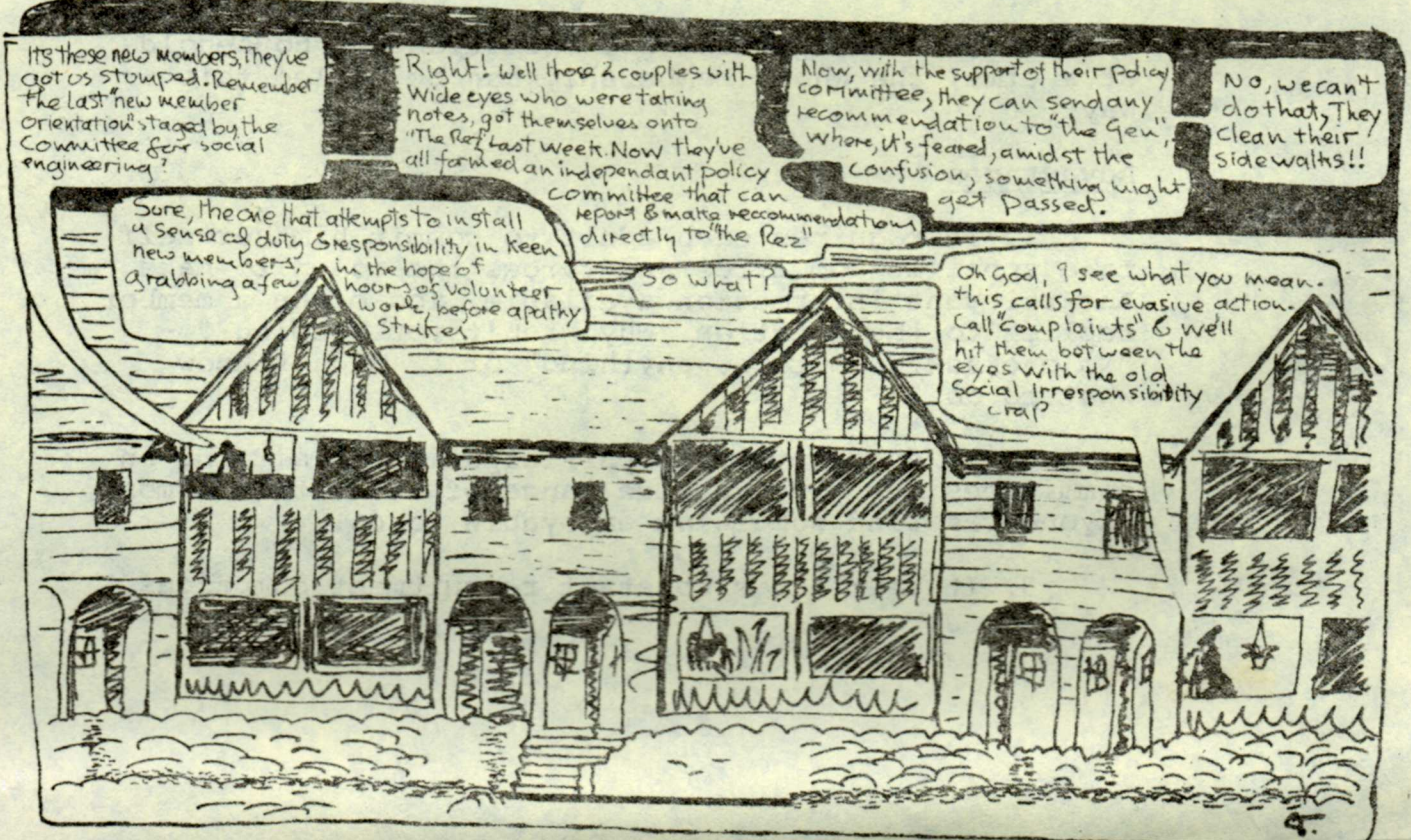 Its these new members, They've
got us stumped. Remember
the last "new member
orientation" staged by the
Committee for social
engineering?
Sure, the one that attempts to install
a sense of duty & responsibility in keen
new members, in the hope of
grabbing a few hours of volunteer
work, before apathy
strikes
Right! Well those 2 couples with
Wide eyes who were taking
notes, got themselves onto
"The Rez", Last week. Now they've
all formed an independant policy
committee that can
report & make reccommendations
directly to "the Rez"
So what?
Now, with the support of their policy
committee, they can send any
recommendation to "the Gen",
where, it's feared, amidst the
confusion, something might
get passed.
Oh God, I see what you mean.
this calls for evasive action.
Call "complaints" & we'll
hit them between the
eyes with the old
Social Irresponsibility
crap
No, we can't
do that, They
clean their
sidewalks!!